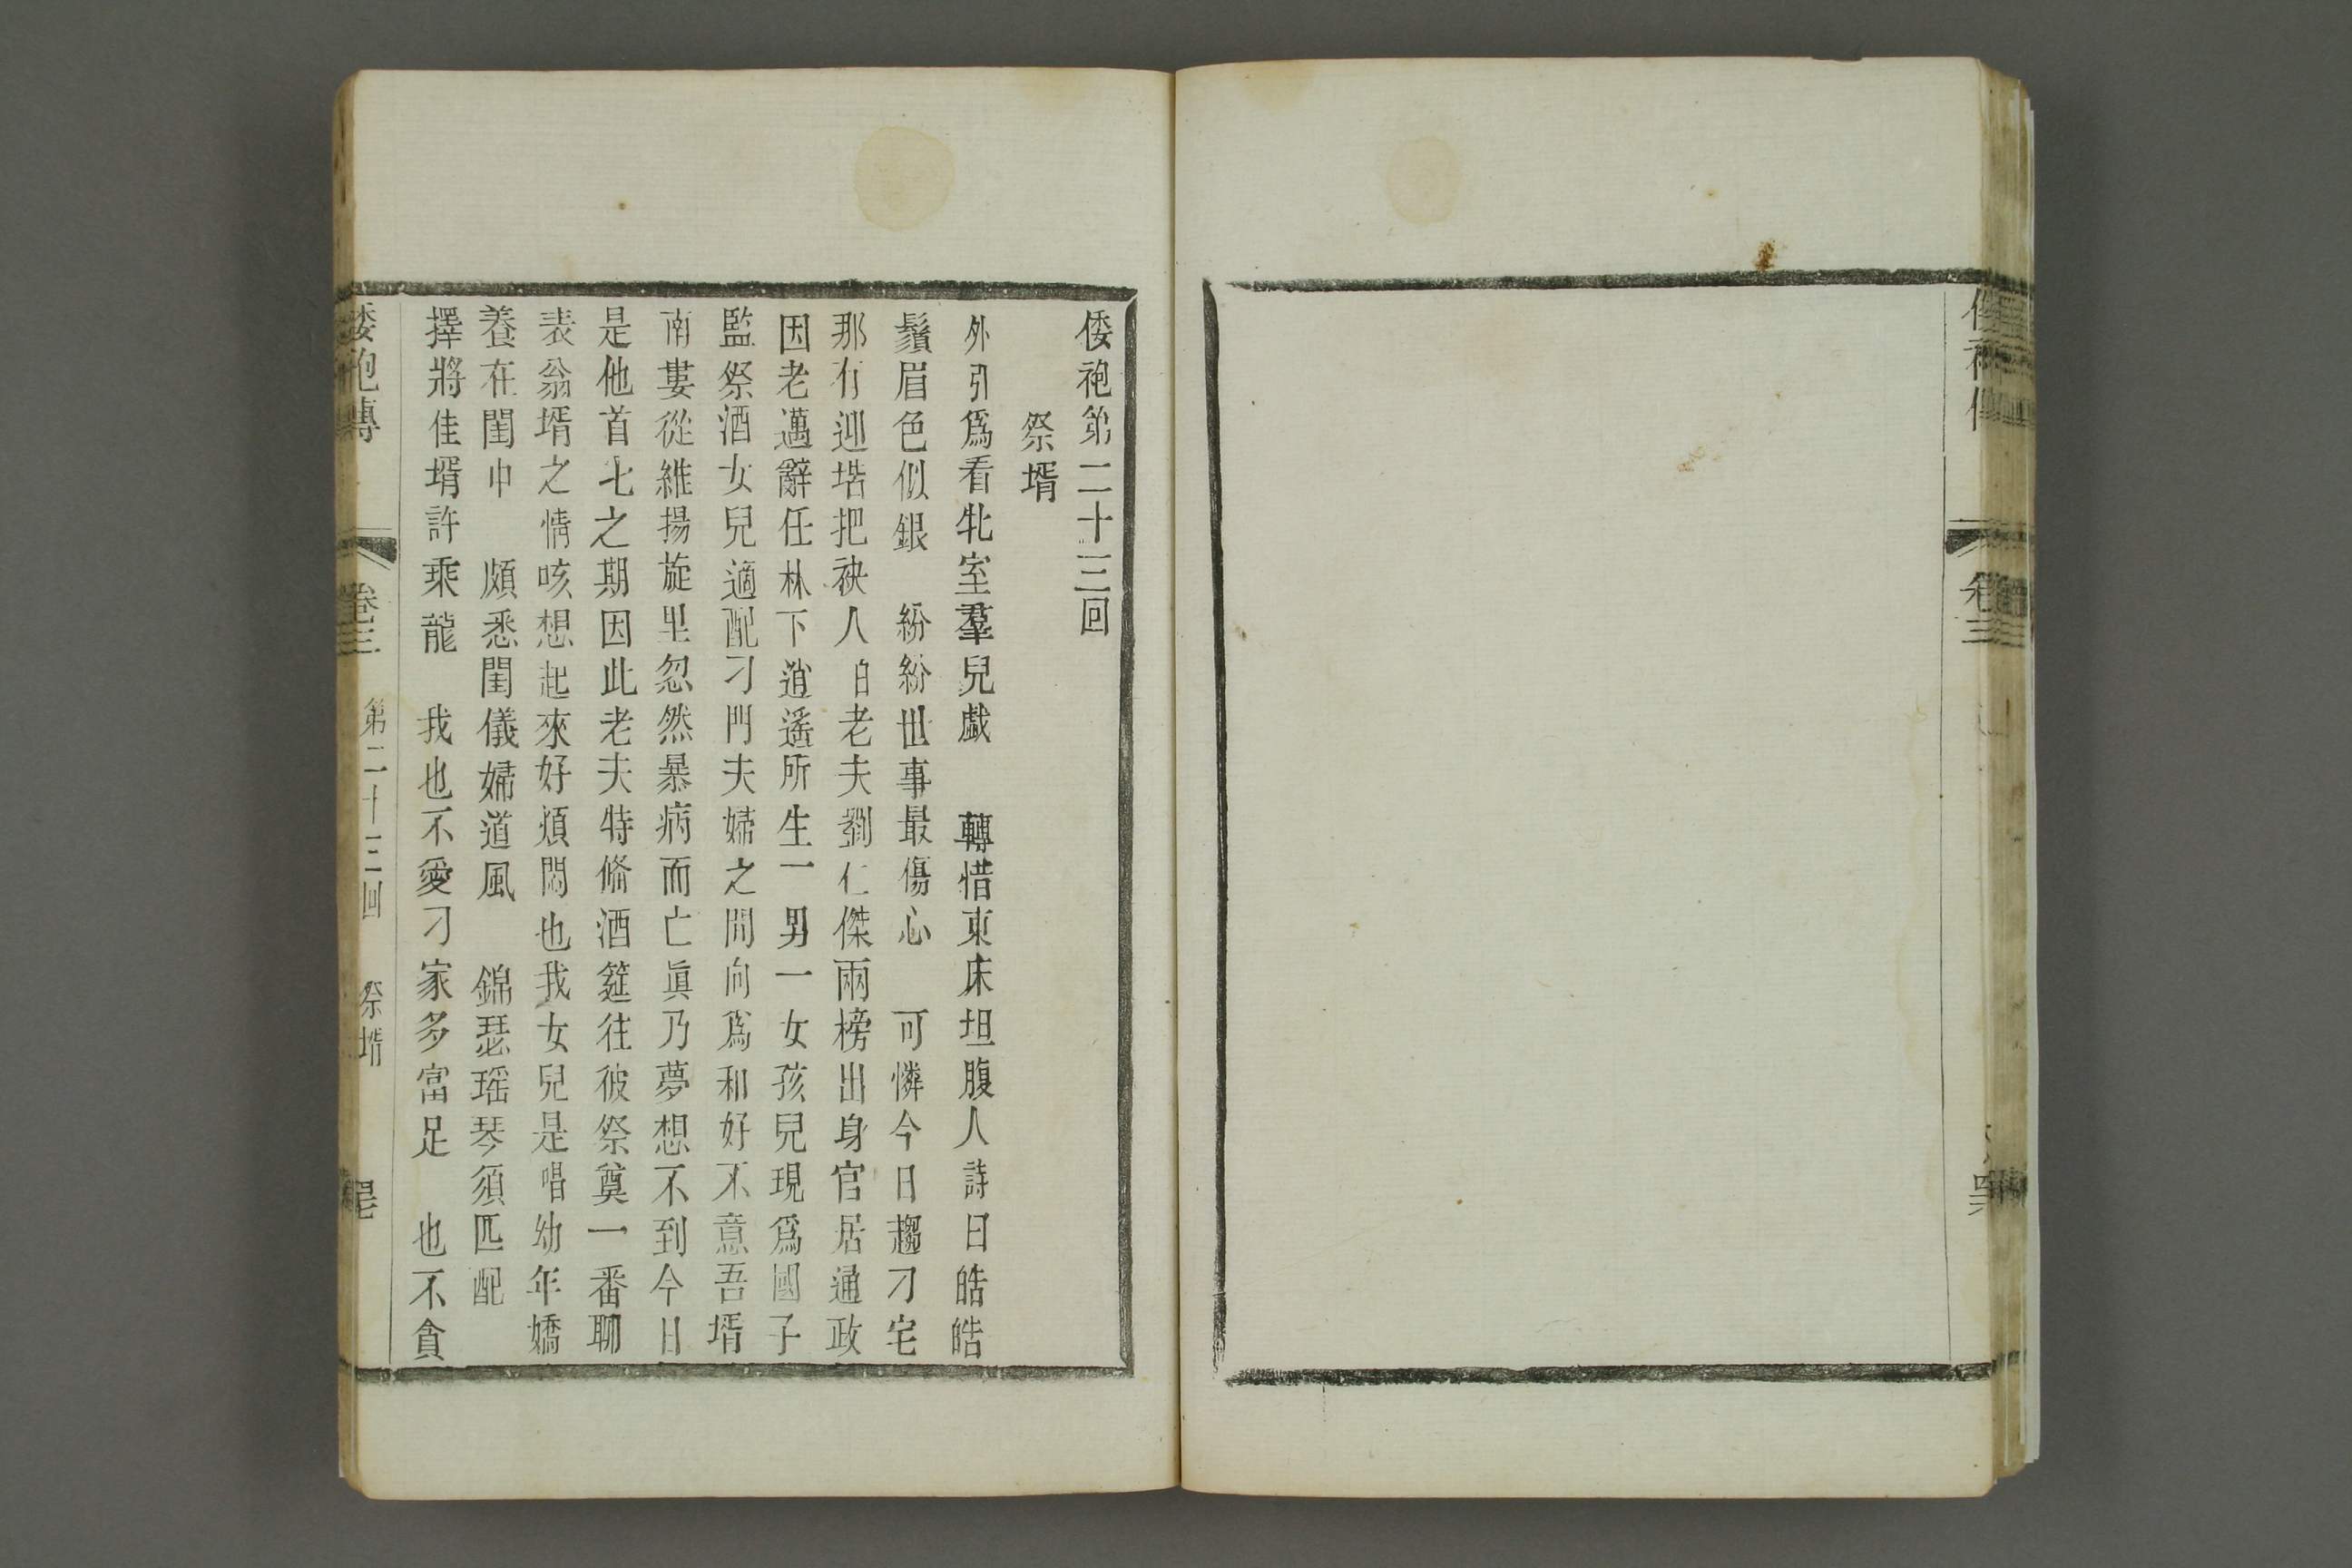 倭袍第二十三回
祭壻
外引爲看牝室羣兒戯 轉惜東床坦腹人詩曰皓皓
鬚眉色似銀 紛紛世事最傷心 可憐今日趨刁宅
那有迎堦把袂人白老夫劉仁傑兩榜出身官居通政
因老邁辭任林下逍遙所生一男一女孩兒現爲國子
監祭酒女兒適配刁門夫婦之間向爲和好不意吾壻
南婁從維揚旋里忽然暴病而亡眞乃夢想不到今日
是他首七之期因此老夫特俻酒筵往彼祭奠一番聊
表翁壻之情咳想起來好煩悶也我女兒是唱幼年嬌
養在閨中 頗悉閨儀婦道風 錦瑟瑶琴須匹配
擇將佳壻許乘龍 我也不愛刁家多富足 也不貪
倭袍傳 卷三 第二十三回 祭壻
卷三